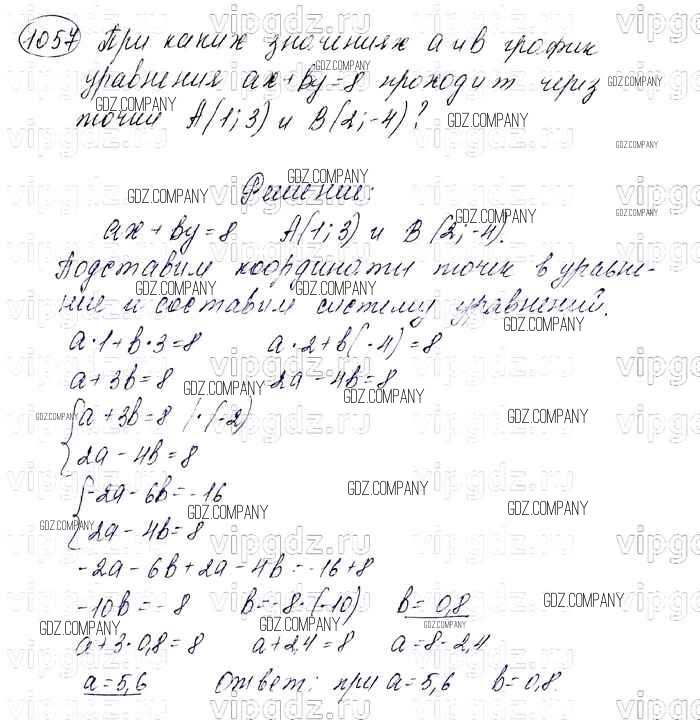 1057 При каких значениях а и в график
уравнения ax + by = 8 проходит через
точки A(1; 3) и B(2; -4)?
Решение:
ax + by = 8 A(1; 3) и B(2; -4).
Подставим координаты точек в уравне-
ние и составим систему уравнений.
a · 1 + b · 3 = 8 a · 2 + b(-4) = 8
a + 3b = 8 2a - 4b = 8
{ a + 3b = 8 | · (-2)
2a - 4b = 8
{ -2a - 6b = -16
2a - 4b = 8
-2a - 6b + 2a - 4b = -16 + 8
-10b = -8 b = -8 : (-10) b = 0,8
a + 3 · 0,8 = 8 a + 2,4 = 8 a = 8 - 2,4
a = 5,6 Ответ: при a = 5,6 b = 0,8.
GDZ.COMPANY
vipgdz.ru